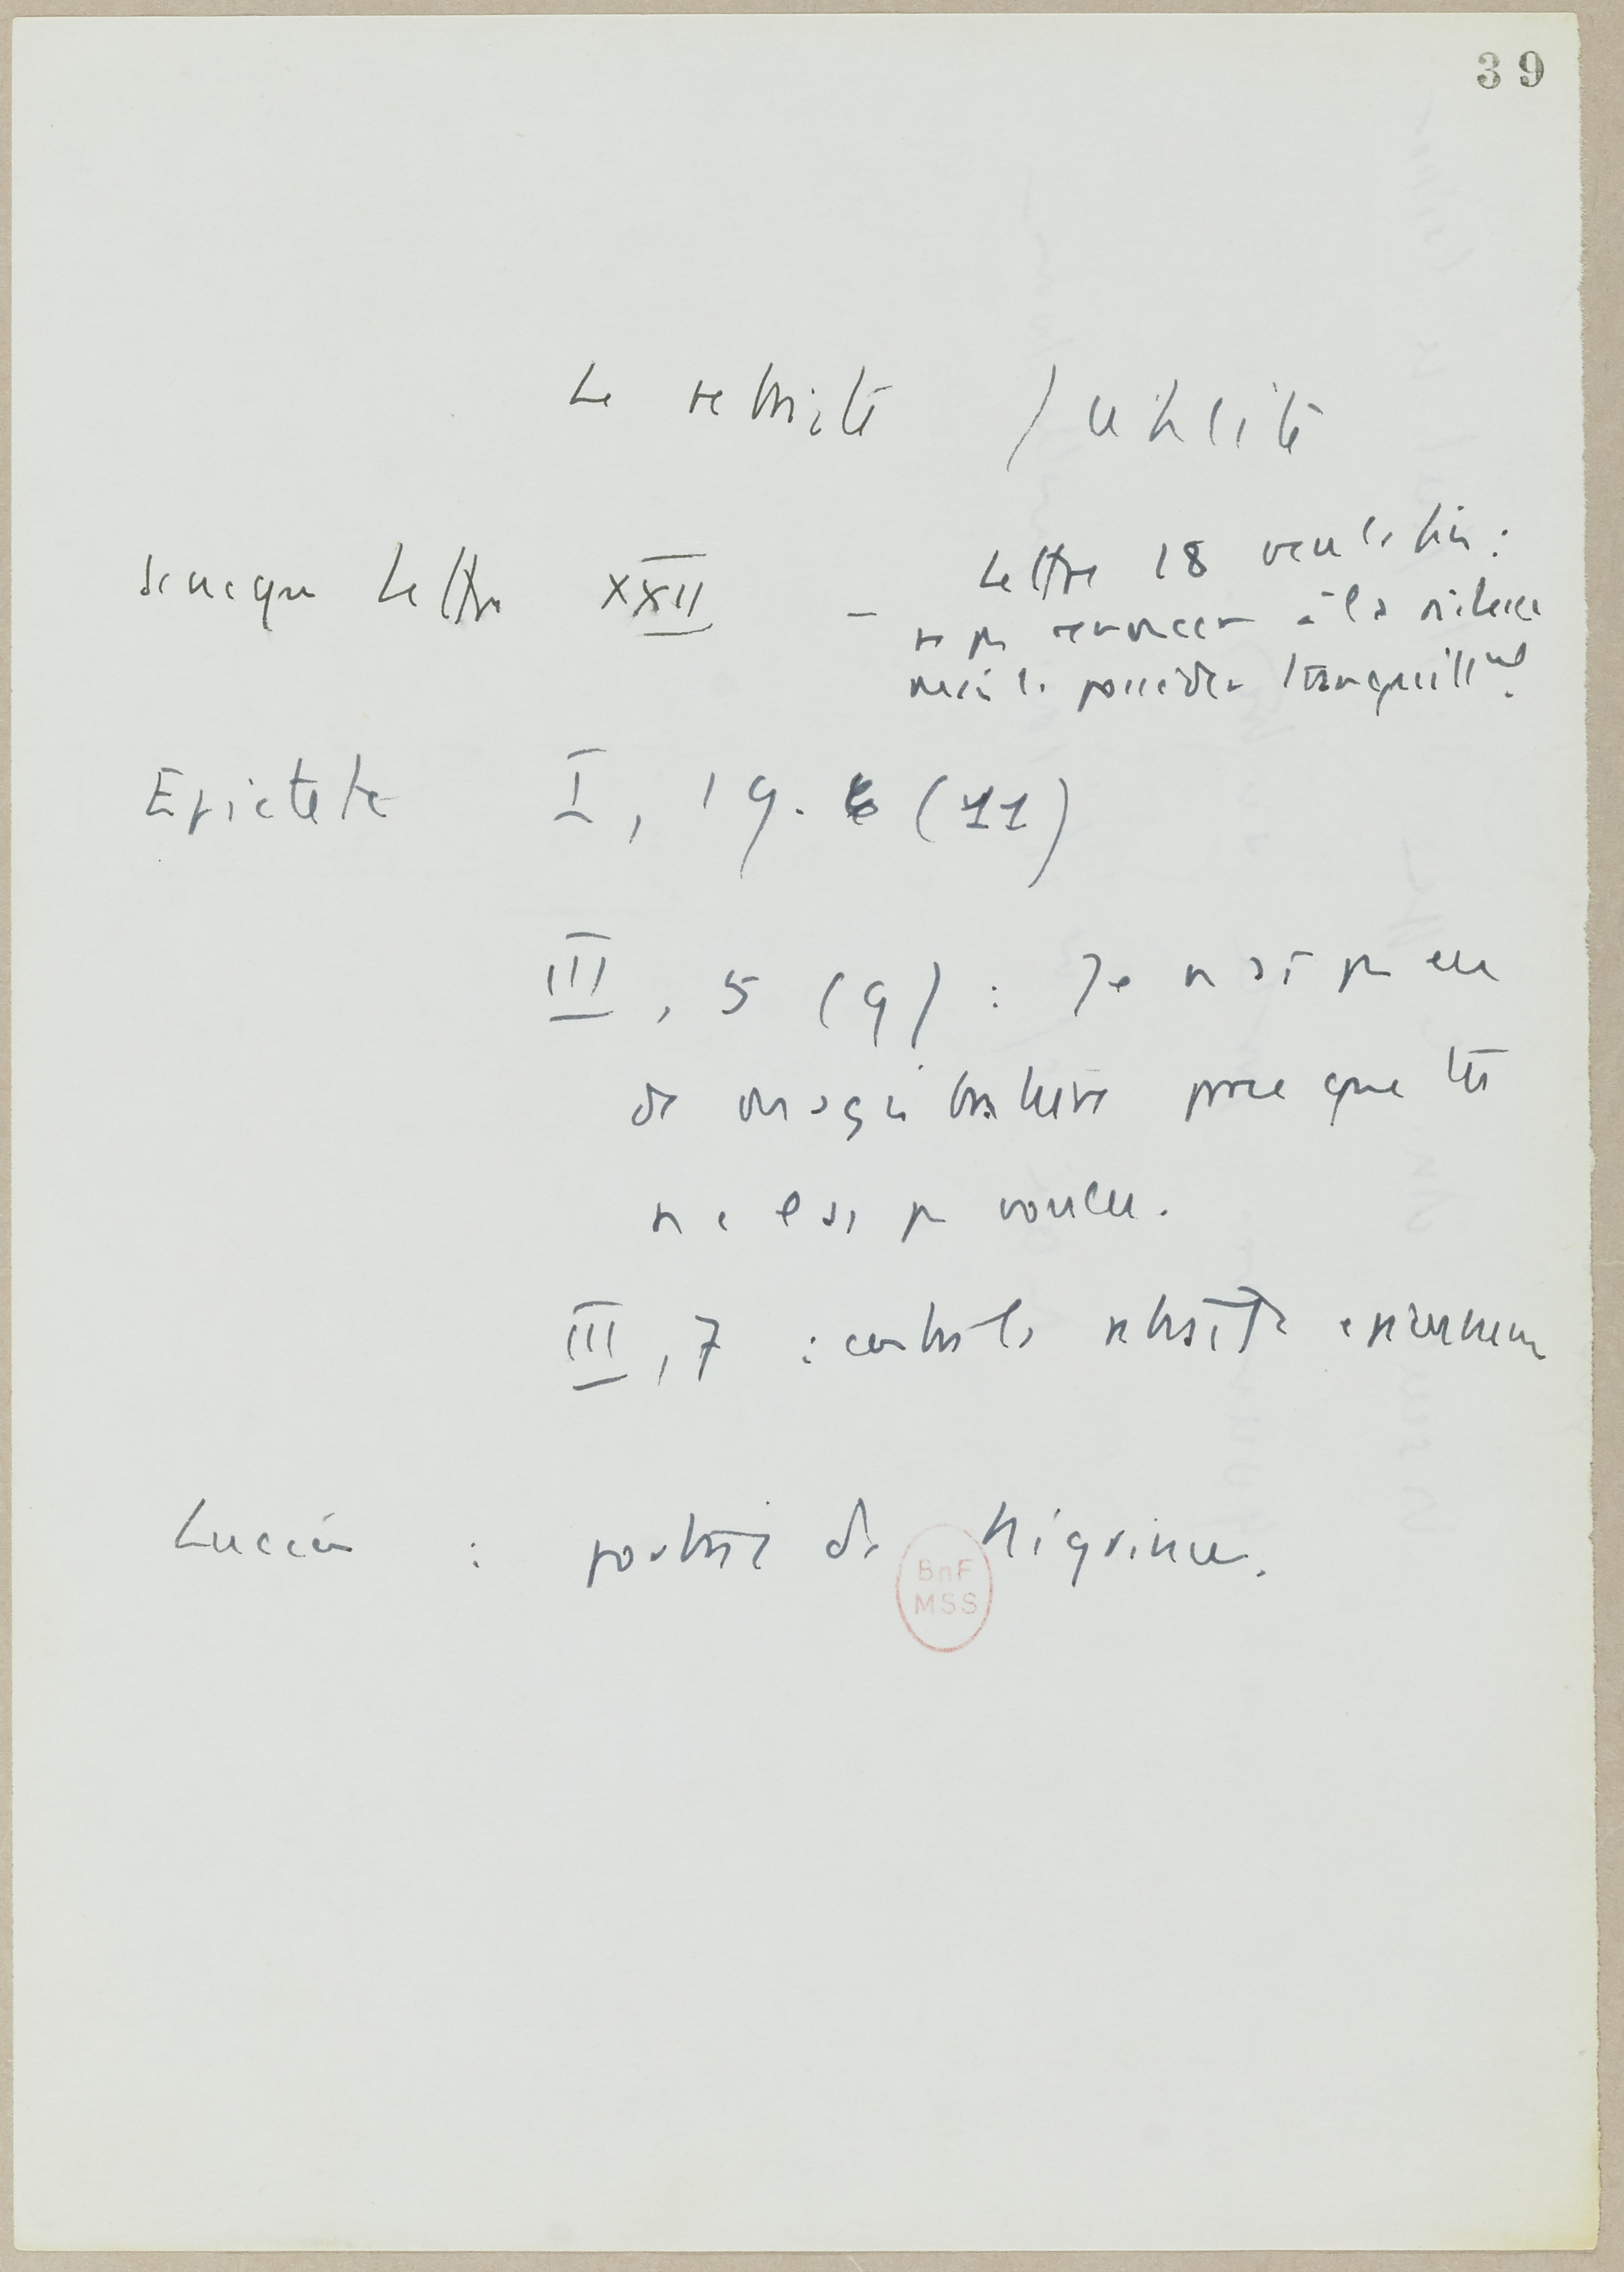 39
La retraite / utilité
Seneque Lettre XXII – Lettre 18 vers la fin :
ne pas renoncer à la richesse
mais la posséder tranquillmt.
Epictete I, 19. 6 (11)
III, 5 (9) : Je n'ai pas eu
de magistrature parce que tu
ne l'as pas voulu.
III, 7 : contre la retraite epicurienne
Lucien : portrait de Nigrinus.
BnF
MSS